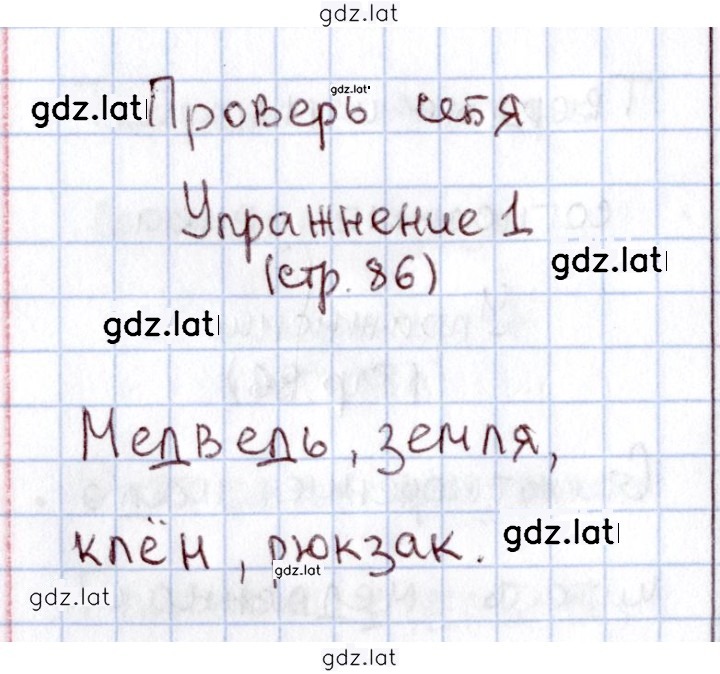 gdz.lat
gdz.lat
gdz.lat
Проверь себя
Упражнение 1
gdz.lat
(стр. 86)
gdz.lat
Медведь, земля,
клён, рюкзак.
gdz.lat
gdz.lat
gdz.lat
gdz.lat